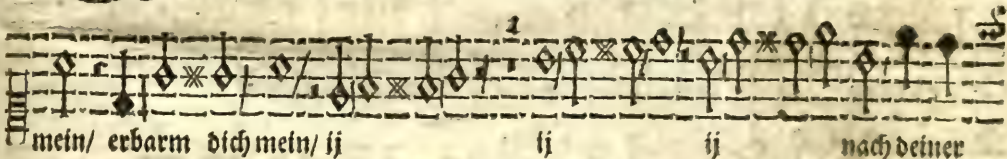 mein/ erbarm dich mein/ ij ij ij nach deiner